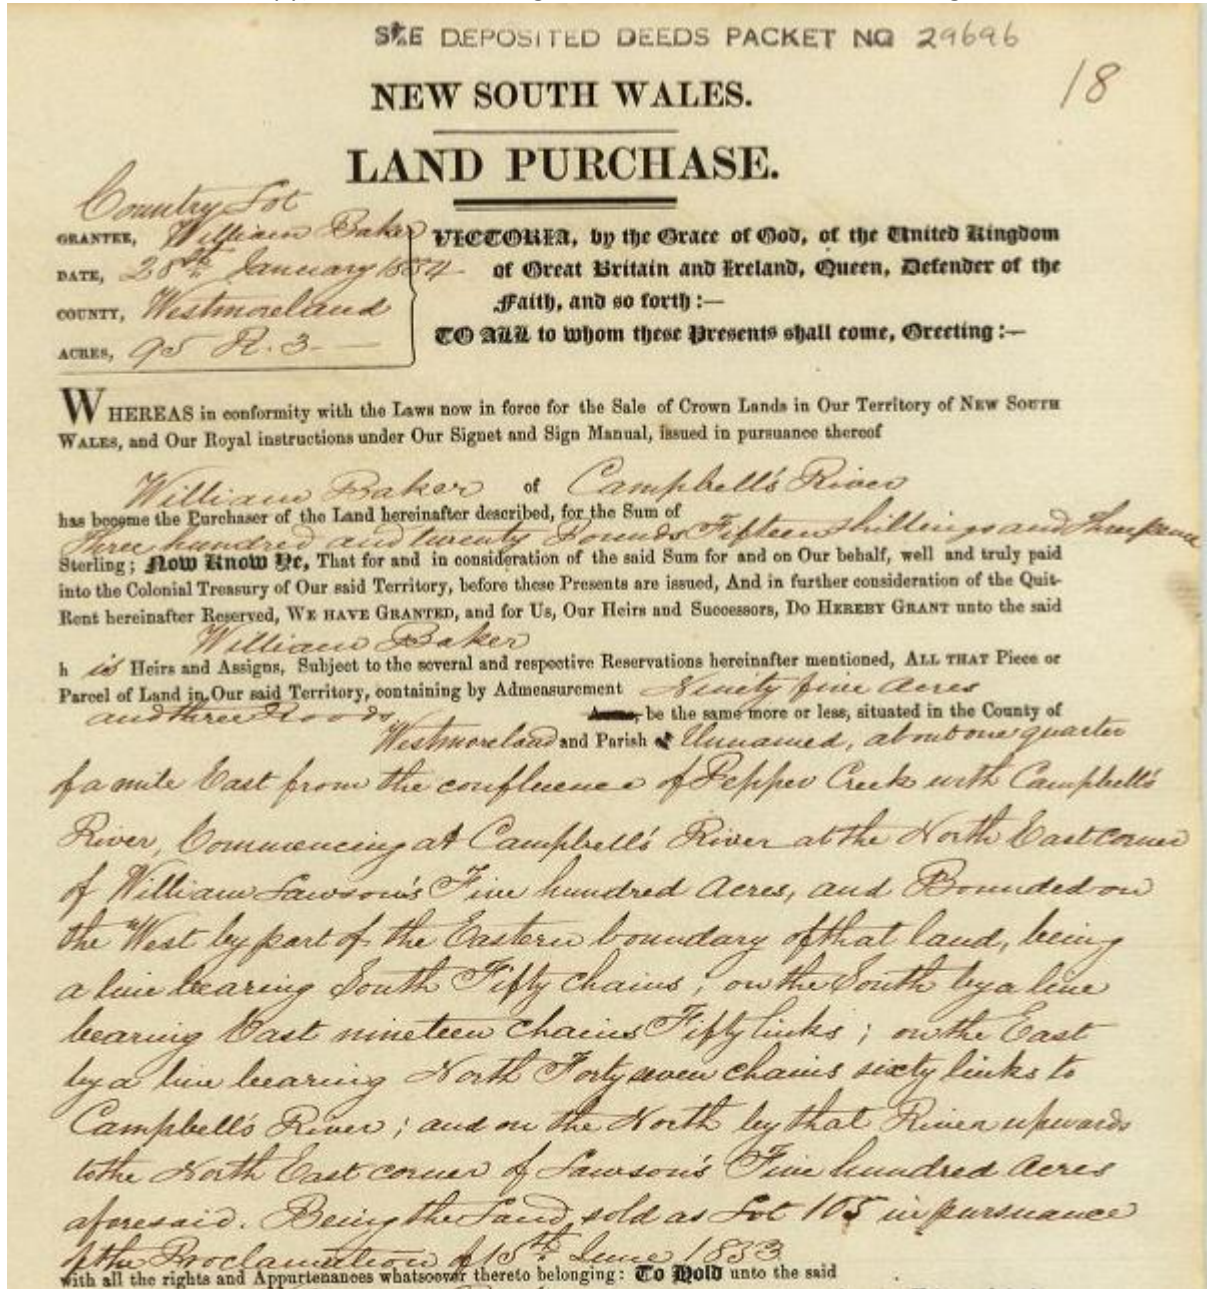 SEE DEPOSITED DEEDS PACKET NO 29696
18
NEW SOUTH WALES.
LAND PURCHASE.
Country Lot
GRANTEE, William Baker
DATE, 28th January 1854
COUNTY, Westmoreland
ACRES, 95 R. 3
VICTORIA, by the Grace of God, of the United Kingdom
of Great Britain and Ireland, Queen, Defender of the
Faith, and so forth:—
TO ALL to whom these Presents shall come, Greeting:—
WHEREAS in conformity with the Laws now in force for the Sale of Crown Lands in Our Territory of NEW SOUTH
WALES, and Our Royal instructions under Our Signet and Sign Manual, issued in pursuance thereof
William Baker of Campbell's River
has become the Purchaser of the Land hereinafter described, for the Sum of
Three hundred and twenty Pounds Fifteen shillings and Three pence
Sterling; Now Know Ye, That for and in consideration of the said Sum for and on Our behalf, well and truly paid
into the Colonial Treasury of Our said Territory, before these Presents are issued, And in further consideration of the Quit-
Rent hereinafter Reserved, WE HAVE GRANTED, and for Us, Our Heirs and Successors, DO HEREBY GRANT unto the said
William Baker
his Heirs and Assigns, Subject to the several and respective Reservations hereinafter mentioned, ALL THAT Piece or
Parcel of Land in Our said Territory, containing by Admeasurement Ninety five Acres
and three Roods be the same more or less, situated in the County of
Westmoreland and Parish of Unnamed, about one quarter
of a mile East from the confluence of Pepper Creek with Campbell's
River, Commencing at Campbell's River at the North East corner
of William Lawson's Five hundred Acres, and Bounded on
the West by part of the Eastern boundary of that land, being
a line bearing South Fifty chains; on the South by a line
bearing East nineteen chains Fifty links; on the East
by a line bearing North Forty seven chains sixty links to
Campbell's River; and on the North by that River upwards
to the North East corner of Lawson's Five hundred Acres
aforesaid. Being the Land sold as Lot 105 in pursuance
of the Proclamation of 15th June 1833
with all the rights and Appurtenances whatsoever thereto belonging: To Hold unto the said